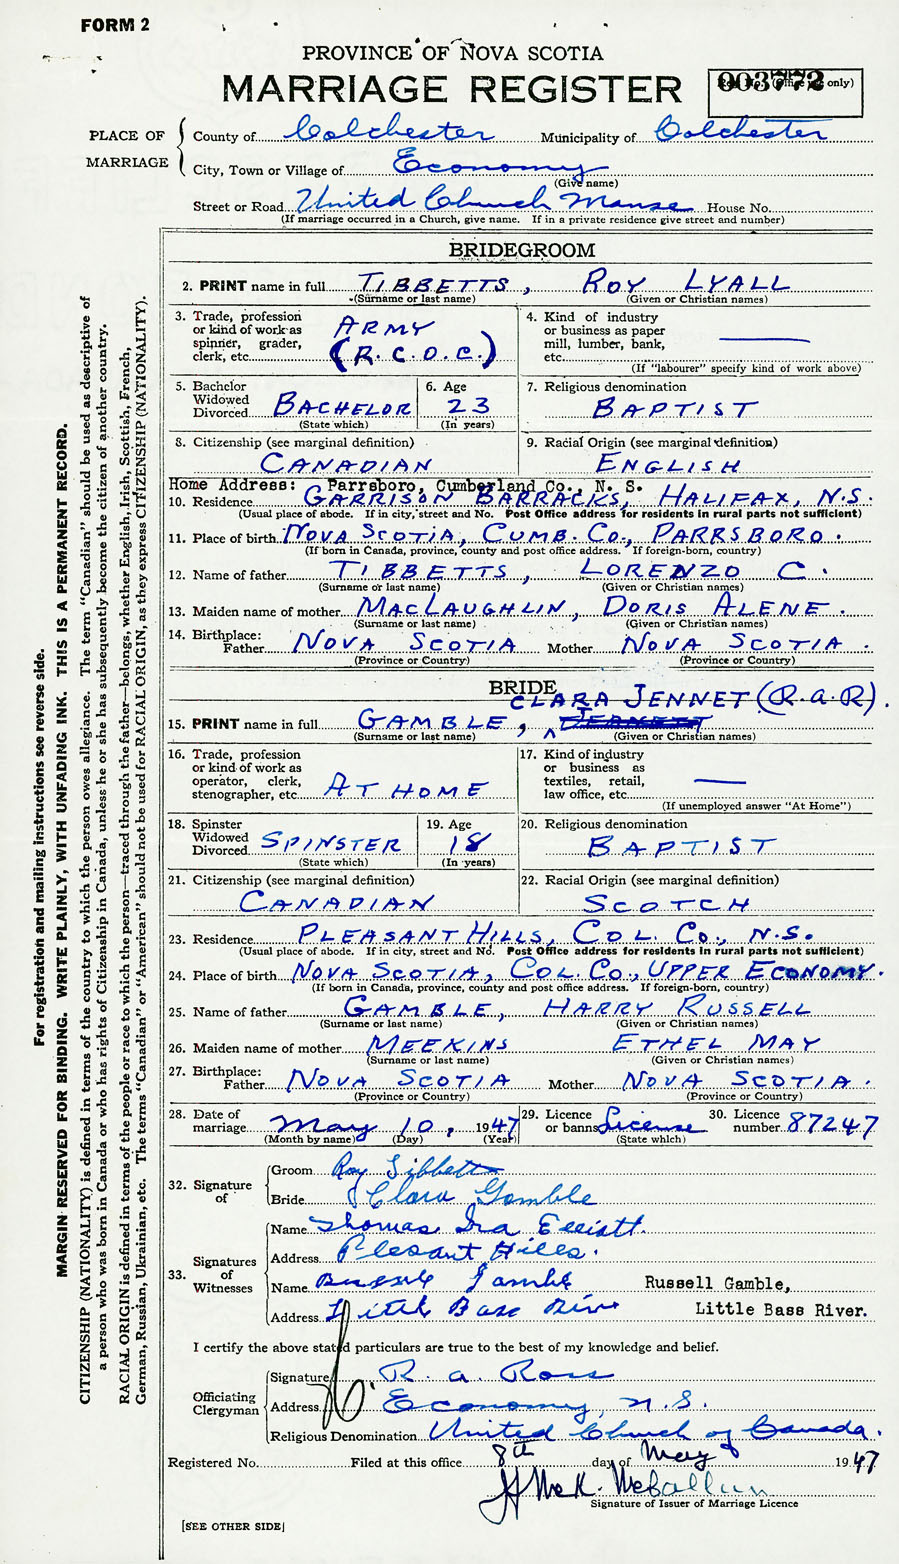 FORM 2
PROVINCE OF NOVA SCOTIA
MARRIAGE REGISTER
003772
(Office use only)
PLACE OF MARRIAGE
County of Colchester Municipality of Colchester
City, Town or Village of Economy
(Give name)
Street or Road United Church Manse House No.
(If marriage occurred in a Church, give name. If in a private residence give street and number)
BRIDEGROOM
2. PRINT name in full TIBBETTS, ROY LYALL
(Surname or last name) (Given or Christian names)
3. Trade, profession or kind of work as spinner, grader, clerk, etc. ARMY (R.C.O.C.)
4. Kind of industry or business as paper mill, lumber, bank, etc. ———
(If "labourer" specify kind of work above)
5. Bachelor Widowed Divorced BACHELOR
(State which)
6. Age 23
(In years)
7. Religious denomination BAPTIST
8. Citizenship (see marginal definition) CANADIAN
9. Racial Origin (see marginal definition) ENGLISH
Home Address: Parrsboro, Cumberland Co., N. S.
10. Residence GARRISON BARRACKS, HALIFAX, N.S.
(Usual place of abode. If in city, street and No. Post Office address for residents in rural parts not sufficient)
11. Place of birth NOVA SCOTIA, CUMB. CO., PARRSBORO.
(If born in Canada, province, county and post office address. If foreign-born, country)
12. Name of father TIBBETTS, LORENZO C.
(Surname or last name) (Given or Christian names)
13. Maiden name of mother MACLAUGHLIN, DORIS ALENE.
(Surname or last name) (Given or Christian names)
14. Birthplace: Father NOVA SCOTIA Mother NOVA SCOTIA.
(Province or Country) (Province or Country)
BRIDE
CLARA JENNET (R.A.R).
15. PRINT name in full GAMBLE,
(Surname or last name) (Given or Christian names)
16. Trade, profession or kind of work as operator, clerk, stenographer, etc. AT HOME
17. Kind of industry or business as textiles, retail, law office, etc. ———
(If unemployed answer "At Home")
18. Spinster Widowed Divorced SPINSTER
(State which)
19. Age 18
(In years)
20. Religious denomination BAPTIST
21. Citizenship (see marginal definition) CANADIAN
22. Racial Origin (see marginal definition) SCOTCH
23. Residence PLEASANT HILLS, COL. CO., N.S.
(Usual place of abode. If in city, street and No. Post Office address for residents in rural parts not sufficient)
24. Place of birth NOVA SCOTIA, COL. CO., UPPER ECONOMY.
(If born in Canada, province, county and post office address. If foreign-born, country)
25. Name of father GAMBLE, HARRY RUSSELL
(Surname or last name) (Given or Christian names)
26. Maiden name of mother MEEKINS ETHEL MAY
(Surname or last name) (Given or Christian names)
27. Birthplace: Father NOVA SCOTIA Mother NOVA SCOTIA.
(Province or Country) (Province or Country)
28. Date of marriage May 10, 1947
(Month by name) (Day) (Year)
29. Licence or banns License
(State which)
30. Licence number 87247
32. Signature of
Groom Roy Tibbetts
Bride Clara Gamble
33. Signatures of Witnesses
Name Thomas Ira Elliott.
Address Plesant Hills.
Name Russele Gamble Russell Gamble,
Address Little Bass River Little Bass River.
I certify the above stated particulars are true to the best of my knowledge and belief.
Officiating Clergyman
Signature R. A. Ross
Address Economy, N.S.
Religious Denomination United Church of Canada.
Registered No. Filed at this office 8th day of May 1947
Signature of Issuer of Marriage Licence
[SEE OTHER SIDE]
For registration and mailing instructions see reverse side.
MARGIN RESERVED FOR BINDING. WRITE PLAINLY, WITH UNFADING INK. THIS IS A PERMANENT RECORD.
CITIZENSHIP (NATIONALITY) is defined in terms of the country to which the person owes allegiance. The term "Canadian" should be used as descriptive of
a person who was born in Canada or who has rights of Citizenship in Canada, unless he or she has subsequently become the citizen of another country.
RACIAL ORIGIN is defined in terms of the people or race to which the person—traced through the father—belongs, whether English, Irish, Scottish, French,
German, Russian, Ukrainian, etc. The terms "Canadian" or "American" should not be used for RACIAL ORIGIN, as they express CITIZENSHIP (NATIONALITY).